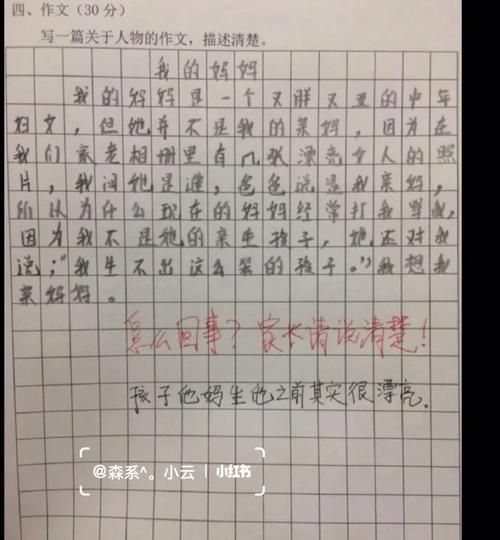 四、作文（30分）
写一篇关于人物的作文，描述清楚。
我的妈妈
我的妈妈是一个又胖又丑的中年
妇女，但她并不是我的亲妈，因为在
我们家老相册里有几张漂亮女人的照
片，我问她是谁，爸爸说是我亲妈，
所以为什么现在的妈妈经常打我骂我，
因为我不是她的亲生孩子，她还对我
说；"我生不出这么笨的孩子。"我想我
亲妈妈。
怎么回事？家长请说清楚！
孩子他妈生他之前其实很漂亮.
@森系^。小云 | 小红书